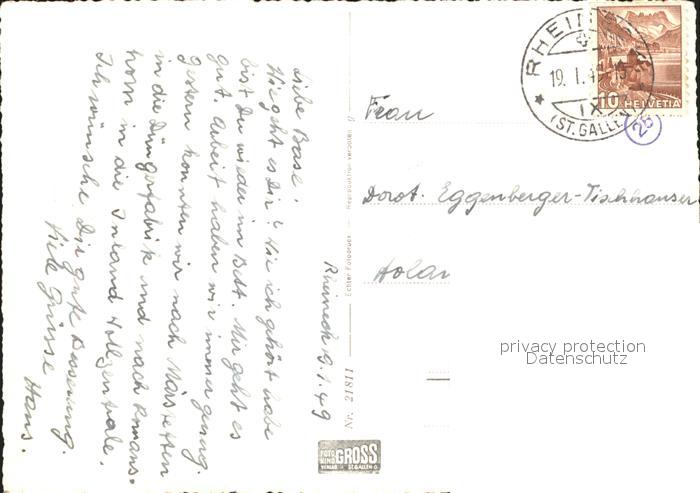 Rheineck 19.1.49
Liebe Base!
Wie geht es Dir? Wie ich gehört habe
bist Du wieder im Bett. Mir geht es
gut. Arbeit haben wir immer genug.
Gestern konnten wir nach Märstetten
in die Düngerfabrik und nach Romans-
horn in die Inland Wollzentrale.
Ich wünsche Dir gute Besserung.
Viele Grüsse
Hans.
Nr. 21811
Echter Fotodruck — Reproduktion verboten
FOTO GROSS
ST. GALLEN
RHEINECK
19. I. 49
(ST. GALLEN)
10 HELVETIA
25
Frau
Dorot. Eggenberger-Tischhauser
privacy protection
Datenschutz